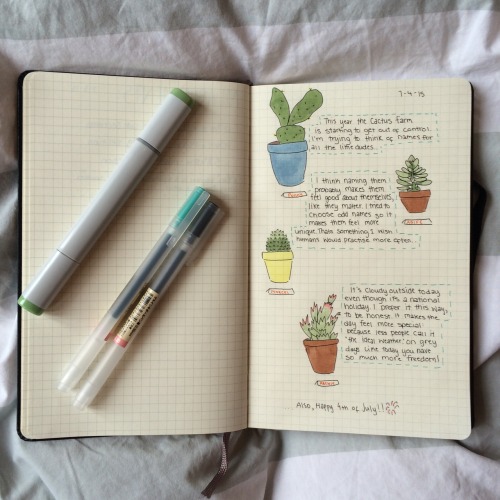 7-4-15
This year the Cactus farm
is starting to get out of control.
I'm trying to think of names for
all the little dudes..
I think naming them
probably makes them
feel good about themselves,
like they matter. I tried to
choose odd names so it
makes them feel more
unique. Thats something I wish
humans would practise more often..
It's cloudy outside today,
even though it's a national
holiday. I prefer it this way,
to be honest. It makes the
day feel more special
because less people call it
"the ideal weather". on grey
days like today you have
so much more freedom!
...Also, Happy 4th of July!!